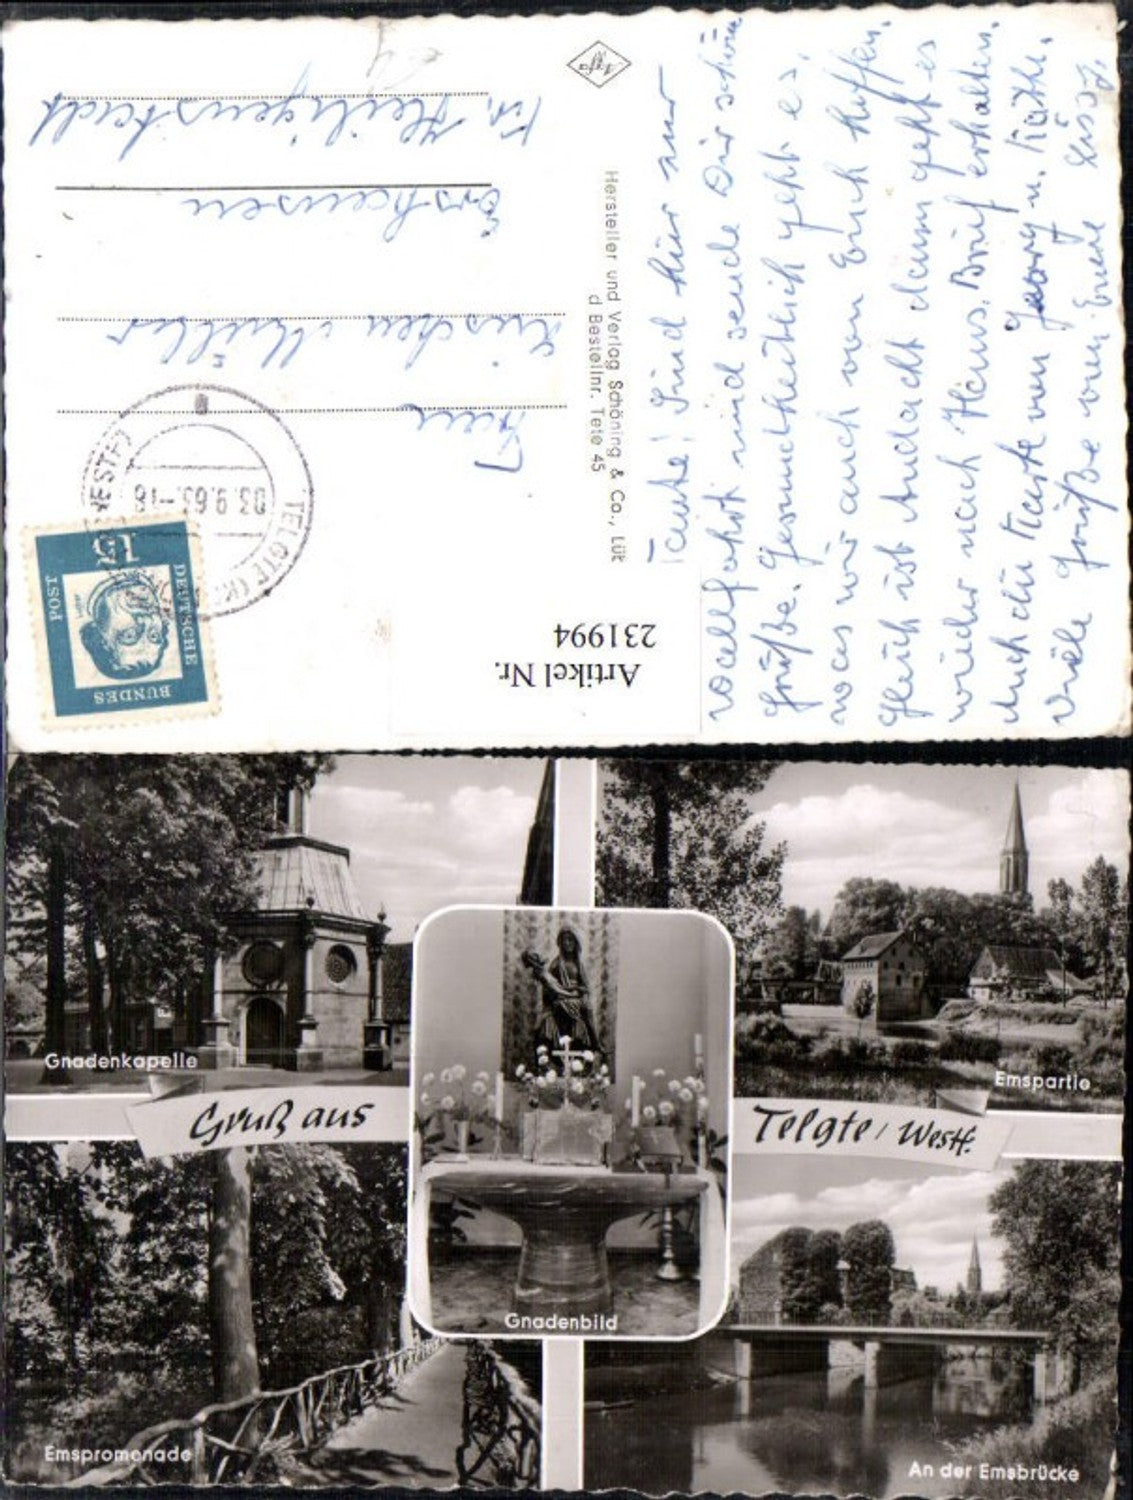 Tante! Sind hier nur
Wallfahrt und sende Dir schöne
Grüße. Gesundheitlich geht es,
was wir auch von Euch hoffen.
Gleich ist Andacht dann geht es
wieder nach Haus. Brief erhalten.
Auch die Karte von Georg u. Käthe.
Viele Grüße von
Hersteller und Verlag Schöning & Co., Lüb
d Bestellnr. Telg 45
Agfa
TELGTE (WESTF)
03.9.63.-18
DEUTSCHE
BUNDES
POST
15
LUTHER
Frau
Müller
in Heiligenstadt
Artikel Nr.
231994
Gnadenkapelle
Emspartie
Gruß aus
Telgte / Westf.
Gnadenbild
Emspromenade
An der Emsbrücke